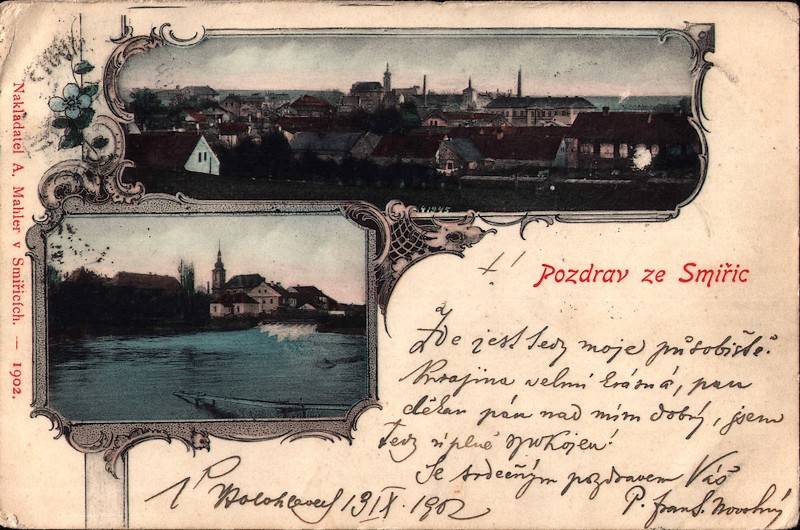 Nakladatel A. Mahler v Smiřicích. — 1902.
Pozdrav ze Smiřic
Zde jest tedy moje působiště.
Krajina velmi krásná, pan
děkan pán nad mim dobrý, jsem
tedy úplně spokojen!
Se srdečným pozdravem Váš
P. Franš. Novotný
19 IX. 1902